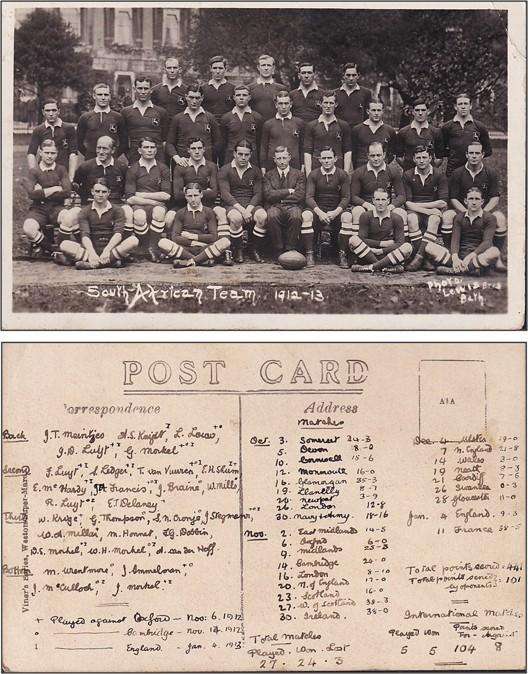 South African Team. 1912-13
Photo
Lewis Bros
Bath.
POST CARD
Correspondence
Address
AIA
Vinar's Series, Weston-super-Mare
Back
J.T. Meintjes
L. Louw,
J.D. Luyt, G. Morkel
Second
F. Luyt, A. Ledger, T. van Vuuren, E.H. Shum
E. McHardy, JA Francis, J. Braine, W. Mills
R. Luyt E.T. Delaney
Third
W. Krige, G. Thompson, S.N. Cronje, J Stegmann
W.A. Millar, M. Honnet, T.G. Bobbin
D.F. Morkel, W.H. Morkel, A. van der Hoff
Bottom
M. Wrentmore, J. Immelman
J. McCulloch, J. Morkel
+ Played against Oxford - Nov. 6, 1912
o Cambridge - Nov. 14 1912
England - Jan. 4, 1913
Matches
Oct. 3. Somerset 24-3
5. Devon 8-0
10. Cornwall 15-6
12. Monmouth 16-0
16. Glamorgan 35-3
19. Llanelly 8-7
24. Newport 3-9
26. London 12-8
30. Navy & Army 18-16
Nov. 2. East Midlands 14-5
6. Oxford 6-0
9. Midlands 25-3
14. Cambridge 24-0
16. London 8-10
20. N. of England 17-0
23. Scotland 16-0
27. W of Scotland 38-3
30. Ireland. 38-0
Dec. 4 Ulster 19-0
7 N. England 21-8
14 Wales 3-0
19 Neath 9-3
21 Cardiff 7-6
26 Swansea 0-3
28 Gloucester 11-0
Jan. 4 England. 9-3
11 France 38-5
Total points scored - 441
Total points scored 101
by opponents
International Matches
Played Won Points scored
For - Against
5 5 104 8
Total Matches
Played. Won Lost
27 . 24 . 3